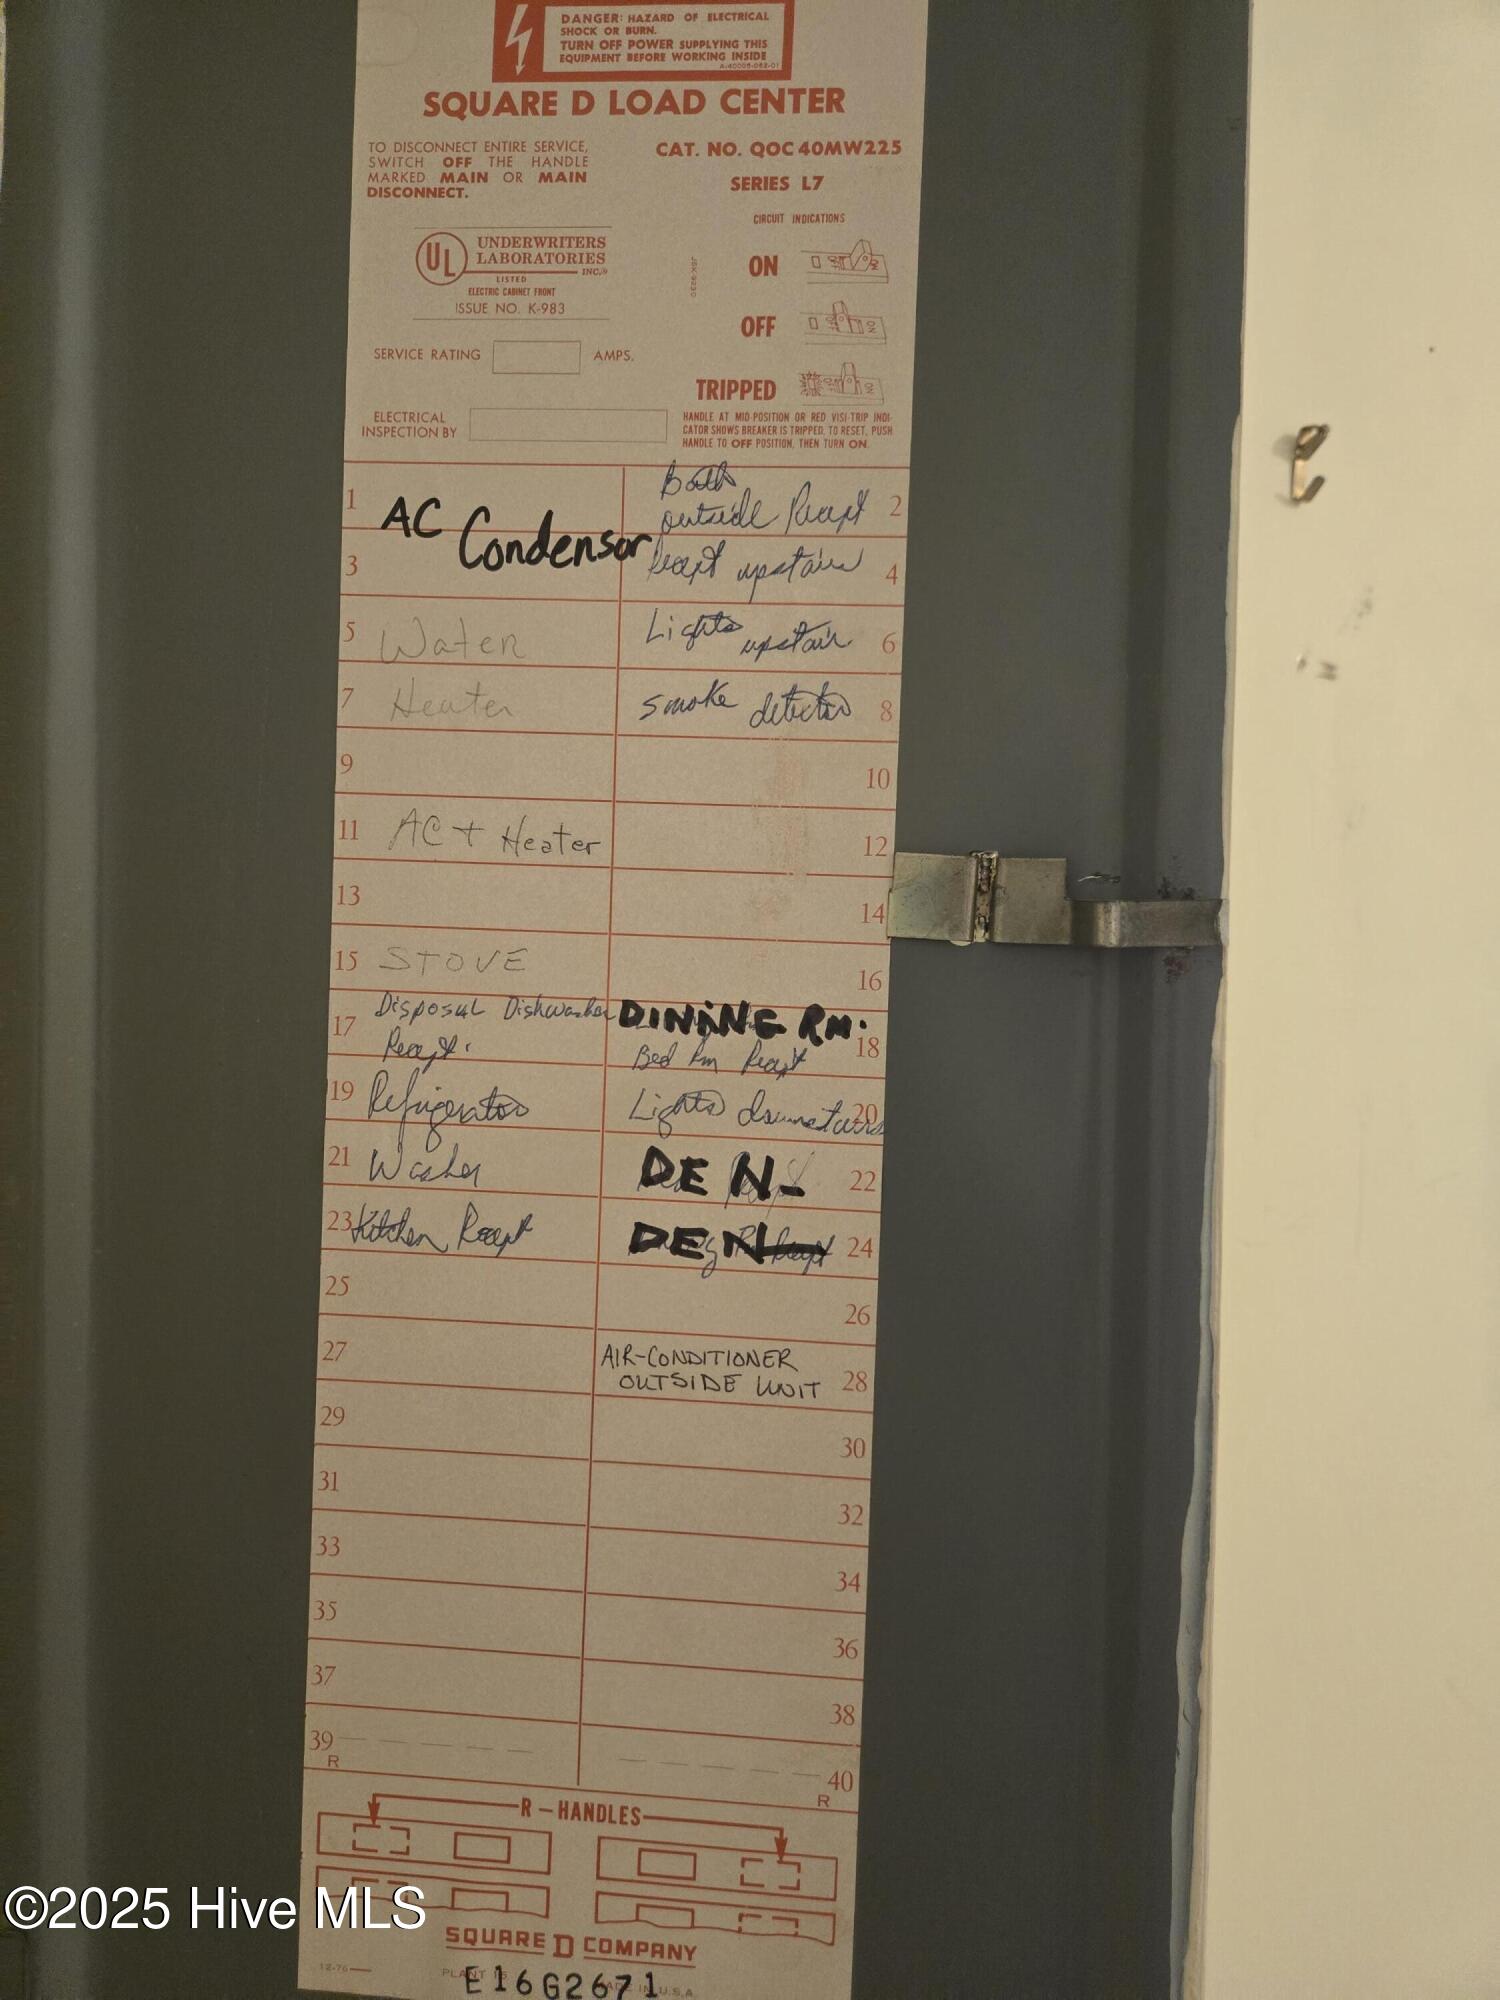 DANGER: HAZARD OF ELECTRICAL
SHOCK OR BURN.
TURN OFF POWER SUPPLYING THIS
EQUIPMENT BEFORE WORKING INSIDE
A-40006-062-01
SQUARE D LOAD CENTER
TO DISCONNECT ENTIRE SERVICE,
SWITCH OFF THE HANDLE
MARKED MAIN OR MAIN
DISCONNECT.
CAT. NO. QOC 40MW225
SERIES L7
CIRCUIT INDICATIONS
UL
UNDERWRITERS
LABORATORIES
INC.®
LISTED
ELECTRIC CABINET FRONT
ISSUE NO. K-983
ON
OFF
SERVICE RATING AMPS.
TRIPPED
ELECTRICAL
INSPECTION BY
HANDLE AT MID-POSITION OR RED VISI-TRIP INDI-
CATOR SHOWS BREAKER IS TRIPPED. TO RESET, PUSH
HANDLE TO OFF POSITION, THEN TURN ON.
1 AC Condensor
Bath
outside Recept 2
3
Recept upstairs 4
5 Water
Lights upstair 6
7 Heater
smoke detector 8
9
10
11 AC + Heater
12
13
14
15 STOVE
16
17 Disposal Dishwasher
Recept.
DINING RM.
Bed Rm Recept 18
19 Refrigerator
Lights downstairs 20
21 Washer
DEN- 22
23 Kitchen Recept
DEN- Recept 24
25
26
27
AIR-CONDITIONER
OUTSIDE UNIT 28
29
30
31
32
33
34
35
36
37
38
39
R
40
R
R-HANDLES
SQUARE D COMPANY
12-76
PLANT 15 MADE IN U.S.A.
E16G2671
©2025 Hive MLS